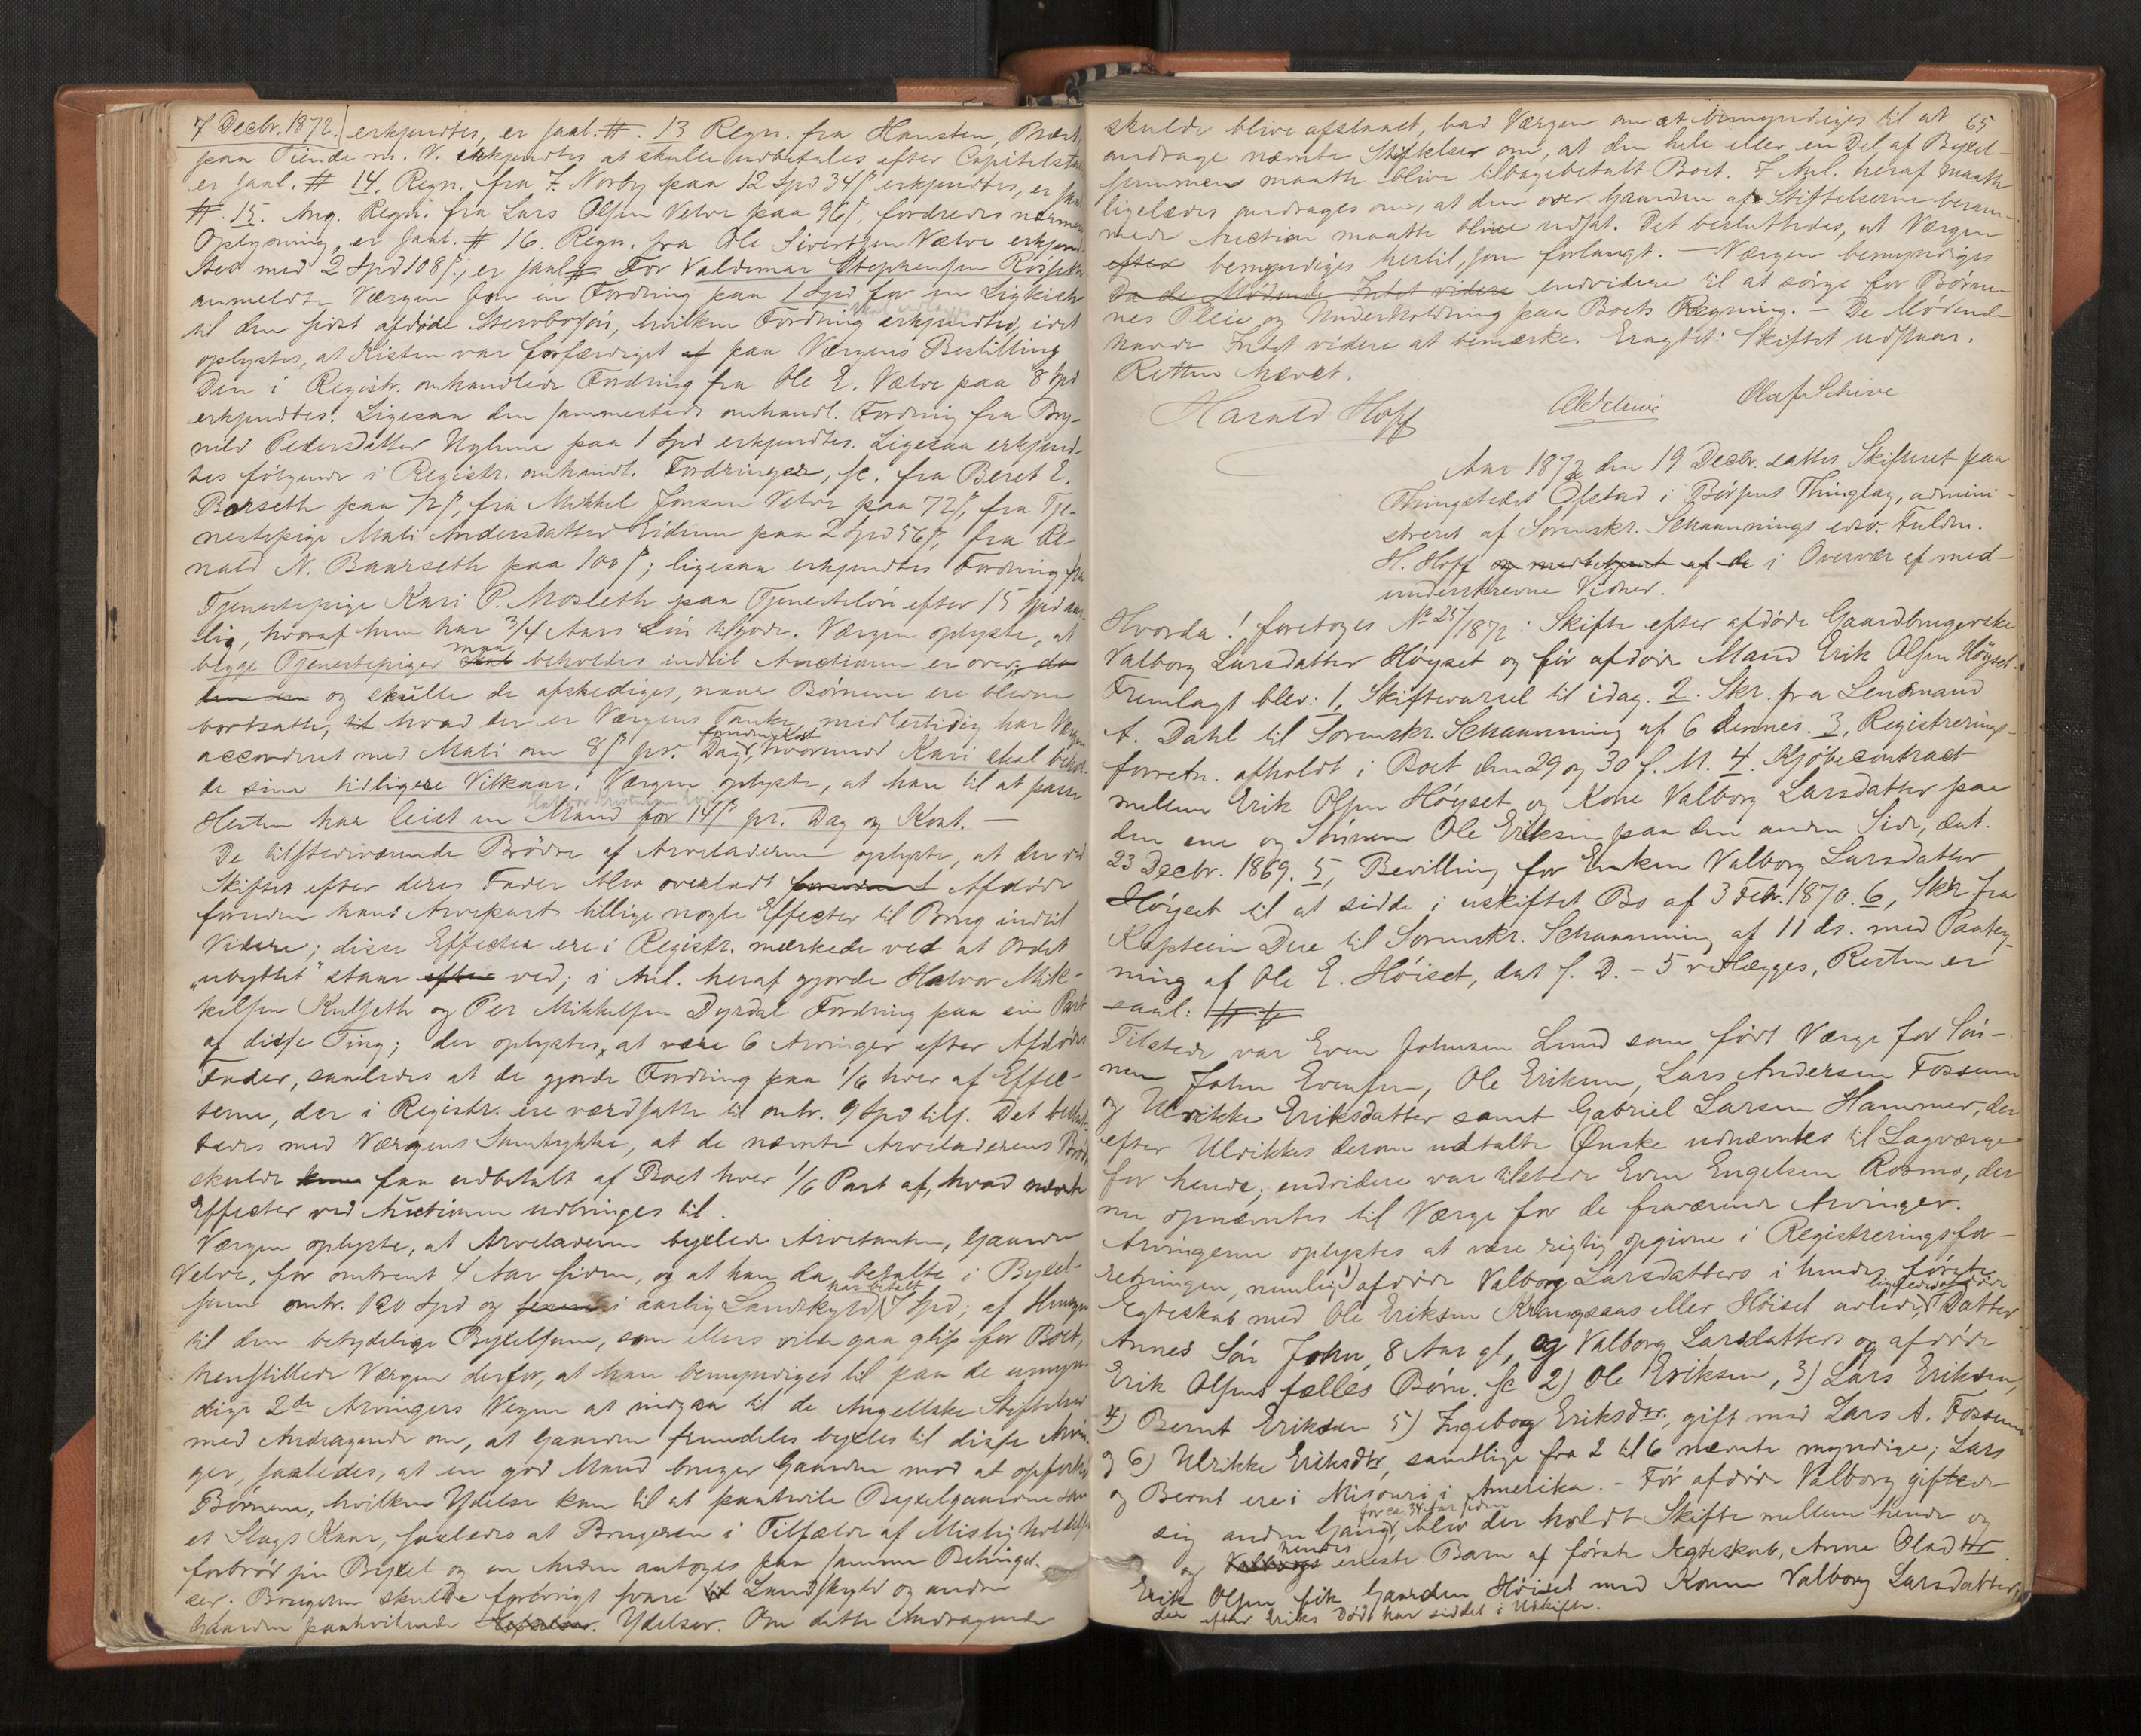 7 Decbr. 1872. erkjendtes, er saal. #. 13 Regn. fra Hansten,
paa Tiende m. V. erkjendtes at skulle udbetales efter Capitelstaxt
er saal. # 14. Regn. fra J. Norby paa 12 Spd 34 ß erkjendtes, er saal.
#. 15. Ang. Regn. fra Lars Olsen Velve paa 96 ß, fordredes nærmere
Oplysning, er saal. # 16. Regn. fra Ole Sivertsen Vælve erkjend-
tes med 2 Spd 108 ß, er saal # For Valdemar Stephensen
anmeldte Værgen Jon en Fordring paa 1 Spd for en Ligkiste
til den sidst afdøde Stervbosøn, hvilken Fordring erkjendtes, idet
oplystes, at Kisten var forfærdiget af paa Værgens Bestilling
Den i Registr. omhandlede Fordring fra Ole E. Vælve paa 8 Spd
erkjendtes. Ligesaa den sammesteds omhandl. Fordring fra Bry-
nild Pedersdatter Nyhuus paa 1 Spd erkjendtes. Ligesaa erkjend-
tes følgende i Registr. omhandl. Fordringer, sc. fra Beret E.
Børseth paa 72 ß, fra Mikkel Jonsen Velve paa 72 ß, fra Tje-
nestepige Mali Andersdatter Eidum paa 2 Spd 56 ß, fra Re-
nald N. Baarseth paa 100 ß; ligesaa erkjendtes Fordring fra
Tjenestepige Kari P. Mosleth paa Tjenesteløn efter 15 Spd aar-
lig, hvoraf hun har 3/4 Aars Løn tilgode. Værgen oplyste, at
begge Tjenestepiger skal maa beholdes indtil Auctionen er over, da
og skulle de afskediges, naar Børnene ere blevne
bortsatte, til hvad der er Værgens Tanke, midlertidig har Værgen
accorderet med Mali om 8 ß pr. Dag foruden Kost, hvorimod Kari skal behol-
de sine tidligere Vilkaar. Værgen oplyste, at han til at passe
Hesten har leiet en Mand for 14 ß pr. Dag og Kost. —
De tilstedeværende Brødre af Arveladeren oplyste, at der ved
Skiftet efter deres Fader blev overladt Afdøde
foruden hans Arvepart tillige nogle Effecter til Brug indtil
Videre; disse Effecter ere i Registr. mærkede ved at Ordet
„ubyttet“ staar efter ved; i Anl. heraf gjorde Halvor Mik-
kelsen Kulseth og Per Mikkelsen Dyrdal Fordring paa sin Part
af disse Ting; der oplystes, at være 6 Arvinger efter Afdødes
Fader, saaledes at de gjorde Fordring paa 1/6 hver af Effec-
terne, der i Registr. ere værdsatte til omtr. 9 Spd tils. Det beslut-
tedes med Værgens Samtykke, at de nævnte Arveladerens Brødre
skulde faa udbetalt af Boet hver 1/6 Part af, hvad nævnte
Effecter ved Auctionen udbringes til.
Værgen oplyste, at Arveladeren byxlede Arvetanten, Gaarden
Velve, for omtrent 4 Aar siden, og at han da betalte i Byxel-
sum omtr. 120 Spd og i aarlig Landskyld har betalt 7 Spd; af Hensyn
til den betydelige Byxelsum, som ellers vilde gaa glip for Boet,
henstillede Værgen derfor, at han bemyndiges til paa de umyn-
dige 2de Arvingers Vegne at indgaa til de Angellske Stiftelser
med Andragende om, at Gaarden fremdeles byxles til disse Arvin-
ger, saaledes, at en god Mand bruger Gaarden mod at opfostre
Børnene, hvilken Ydelse kom til at paahvile Byxelgaarden som
et Slags Kaar, saaledes at Brugeren i Tilfælde af Misligholdelse
forbrød sin Byxel og en Anden antoges paa samme Betingel-
ser. Brugeren skulde forøvrigt svare til Landskyld og andre
Gaarden paahvilende Ydelser. Om dette Andragende
65
skulde blive afslaaet, bad Værgen om at bemyndiges til at
andrage nævnte Stiftelser om, at den hele eller en Del af Byxel-
summen maatte blive tilbagebetalt Boet. I Anl. heraf maatte
ligeledes andrages om, at den over Gaarden af Stiftelserne beram-
mede Auction maatte blive udsat. Det besluttedes, at Værgen
efter bemyndiges hertil, som forlangt. — Værgen bemyndiges
Da de Mødende Intet videre endvidere til at sørge for Børne-
nes Pleie og Underholdning paa Boets Regning. — De Mødende
havde Intet videre at bemærke. Eragtet: Skiftet udstaar.
Retten hævet.
Harald Hoff
Olaf Schive.
Aar 1872 den 19 Decbr. sattes Skifteret paa
Thingstedet Ølstad i Børsens Thinglag, admini-
streret af Sorenskr. Schaannings edsv. Fuldm.
H. Hoff og medbetjent af de i Overvær af med-
underskrevne Vidner.
Hvorda! foretoges No 25/1872: Skifte efter afdøde Gaardbrugerske
Valborg Larsdatter Høyset og før afdøde Mand Erik Olsen Høyset.
Fremlagt blev: 1, Skiftevarsel til idag. 2. Skr. fra Lensmand
A. Dahl til Sorenskr. Schaanning af 6 dennes. 3, Registrerings-
forretn. afholdt i Boet den 29 og 30 f. M. 4. Kjøbecontract
mellem Erik Olsen Høyset og Kone Valborg Larsdatter paa
den ene og Sønnen Ole Eriksen paa den anden Side, dat.
23 Decbr. 1869. 5, Bevilling for Enken Valborg Larsdatter
Høyset til at sidde i uskiftet Bo af 3 Febr. 1870. 6, Skr. fra
Kaptein Due til Sorenskr. Schaanning af 11 ds. med Paateg-
ning af Ole E. Høiset, dat s. D. – 5 vedlægges, Resten er
saal: # #
Tilstede var Even Johnsen Lund som født Værge for Søn-
nen John Evensen, Ole Eriksen, Lars Andersen Fossum
og Ulrikke Eriksdatter samt Gabriel Larsen Hammer, der
efter Ulrikkes derom udtalte Ønske udnævntes til Lagværge
for hende; endvidere var tilstede Even Engelsen Rosmo, der
nu opnævntes til Værge for de fraværende Arvinger.
Arvingerne oplystes at være rigtig opgivne i Registreringsfor-
retningen, nemlig: 1) afdøde Valborg Larsdatters i hendes første
Egteskab med Ole Eriksen Krangsaas eller Høiset avlede, ligeledes afdøde Datter
Annes Søn John, 8 Aar gl, og Valborg Larsdatters og afdøde
Erik Olsens fælles Børn. sc 2) Ole Eriksen, 3) Lars Eriksen,
4) Bernt Eriksen 5) Ingeborg Eriksdtr., gift med Lars A. Fossum
og 6) Ulrikke Eriksdtr, samtlige fra 2 til 6 nævnte myndige; Lars
og Bernt ere i Misouri i Amerika. – Før afdøde Valborg giftede
sig anden Gang for ca. 34 Aar siden, blev der holdt Skifte mellem hende og
og Valborgs hendes eneste Barn af første Egteskab, Anne Olsdtr.
Erik Olsen fik Gaarden Høiset med Konen Valborg Larsdatter,
der efter Eriks Død har siddet i Uskifte.